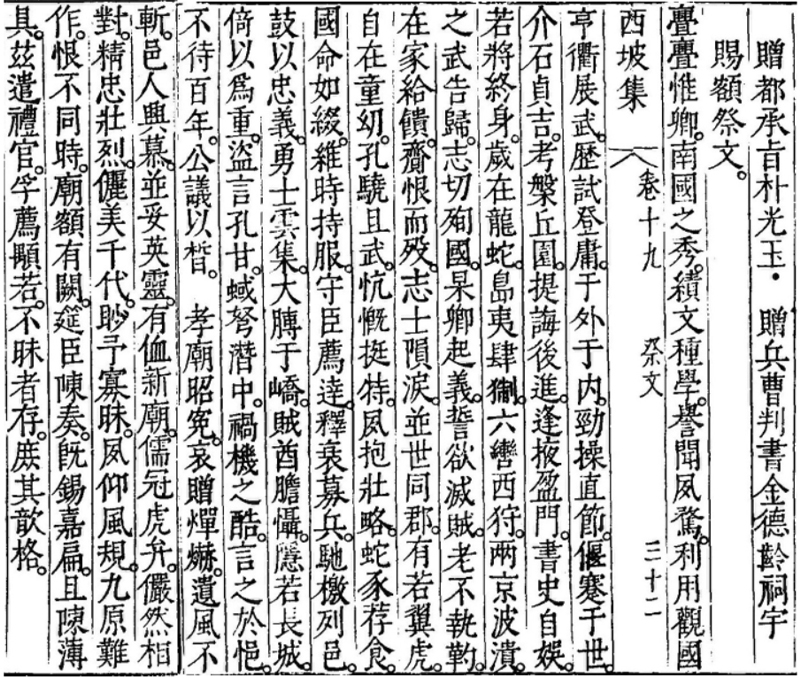 贈都承旨朴光玉·贈兵曹判書金德齡祠宇
賜額祭文。
亹亹惟卿。南國之秀。績文種學。譽聞夙騖。利用觀國
西坡集 卷十九 祭文 三十二
亨衢展武。歷試登庸。于外于内。勁操直節。偃蹇于世。
介石貞吉。考槃丘園。提誨後進。逢掖盈門。書史自娛。
若將終身。歲在龍蛇。島夷肆猘。六轡西狩。兩京波潰。
之武告歸。志切殉國。杲卿起義。誓欲滅賊。老不執靮。
在家給饋。齎恨而歿。志士隕淚。並世同郡。有若翼虎。
自在童幼。孔驍且武。忼慨挺特。夙抱壯略。蛇豕荐食。
國命如綴。維時持服。守臣薦達。釋衰募兵。馳檄列邑。
鼓以忠義。勇士雲集。大膊于嶠。賊酋膽懾。隱若長城。
倚以爲重。盜言孔甘。蜮弩潛中。禍機之酷。言之於悒。
不待百年。公議以晳。 孝廟昭冤。哀贈燀爀。遺風不
斬。邑人興慕。並妥英靈。有侐新廟。儒冠虎弁。儼然相
對。精忠壯烈。儷美千代。眇予寡昧。夙仰風規。九原難
作。恨不同時。廟額有闕。筵臣陳奏。旣錫嘉扁。且陳薄
具。玆遣禮官。孚薦顒若。不昧者存。庶其歆格。